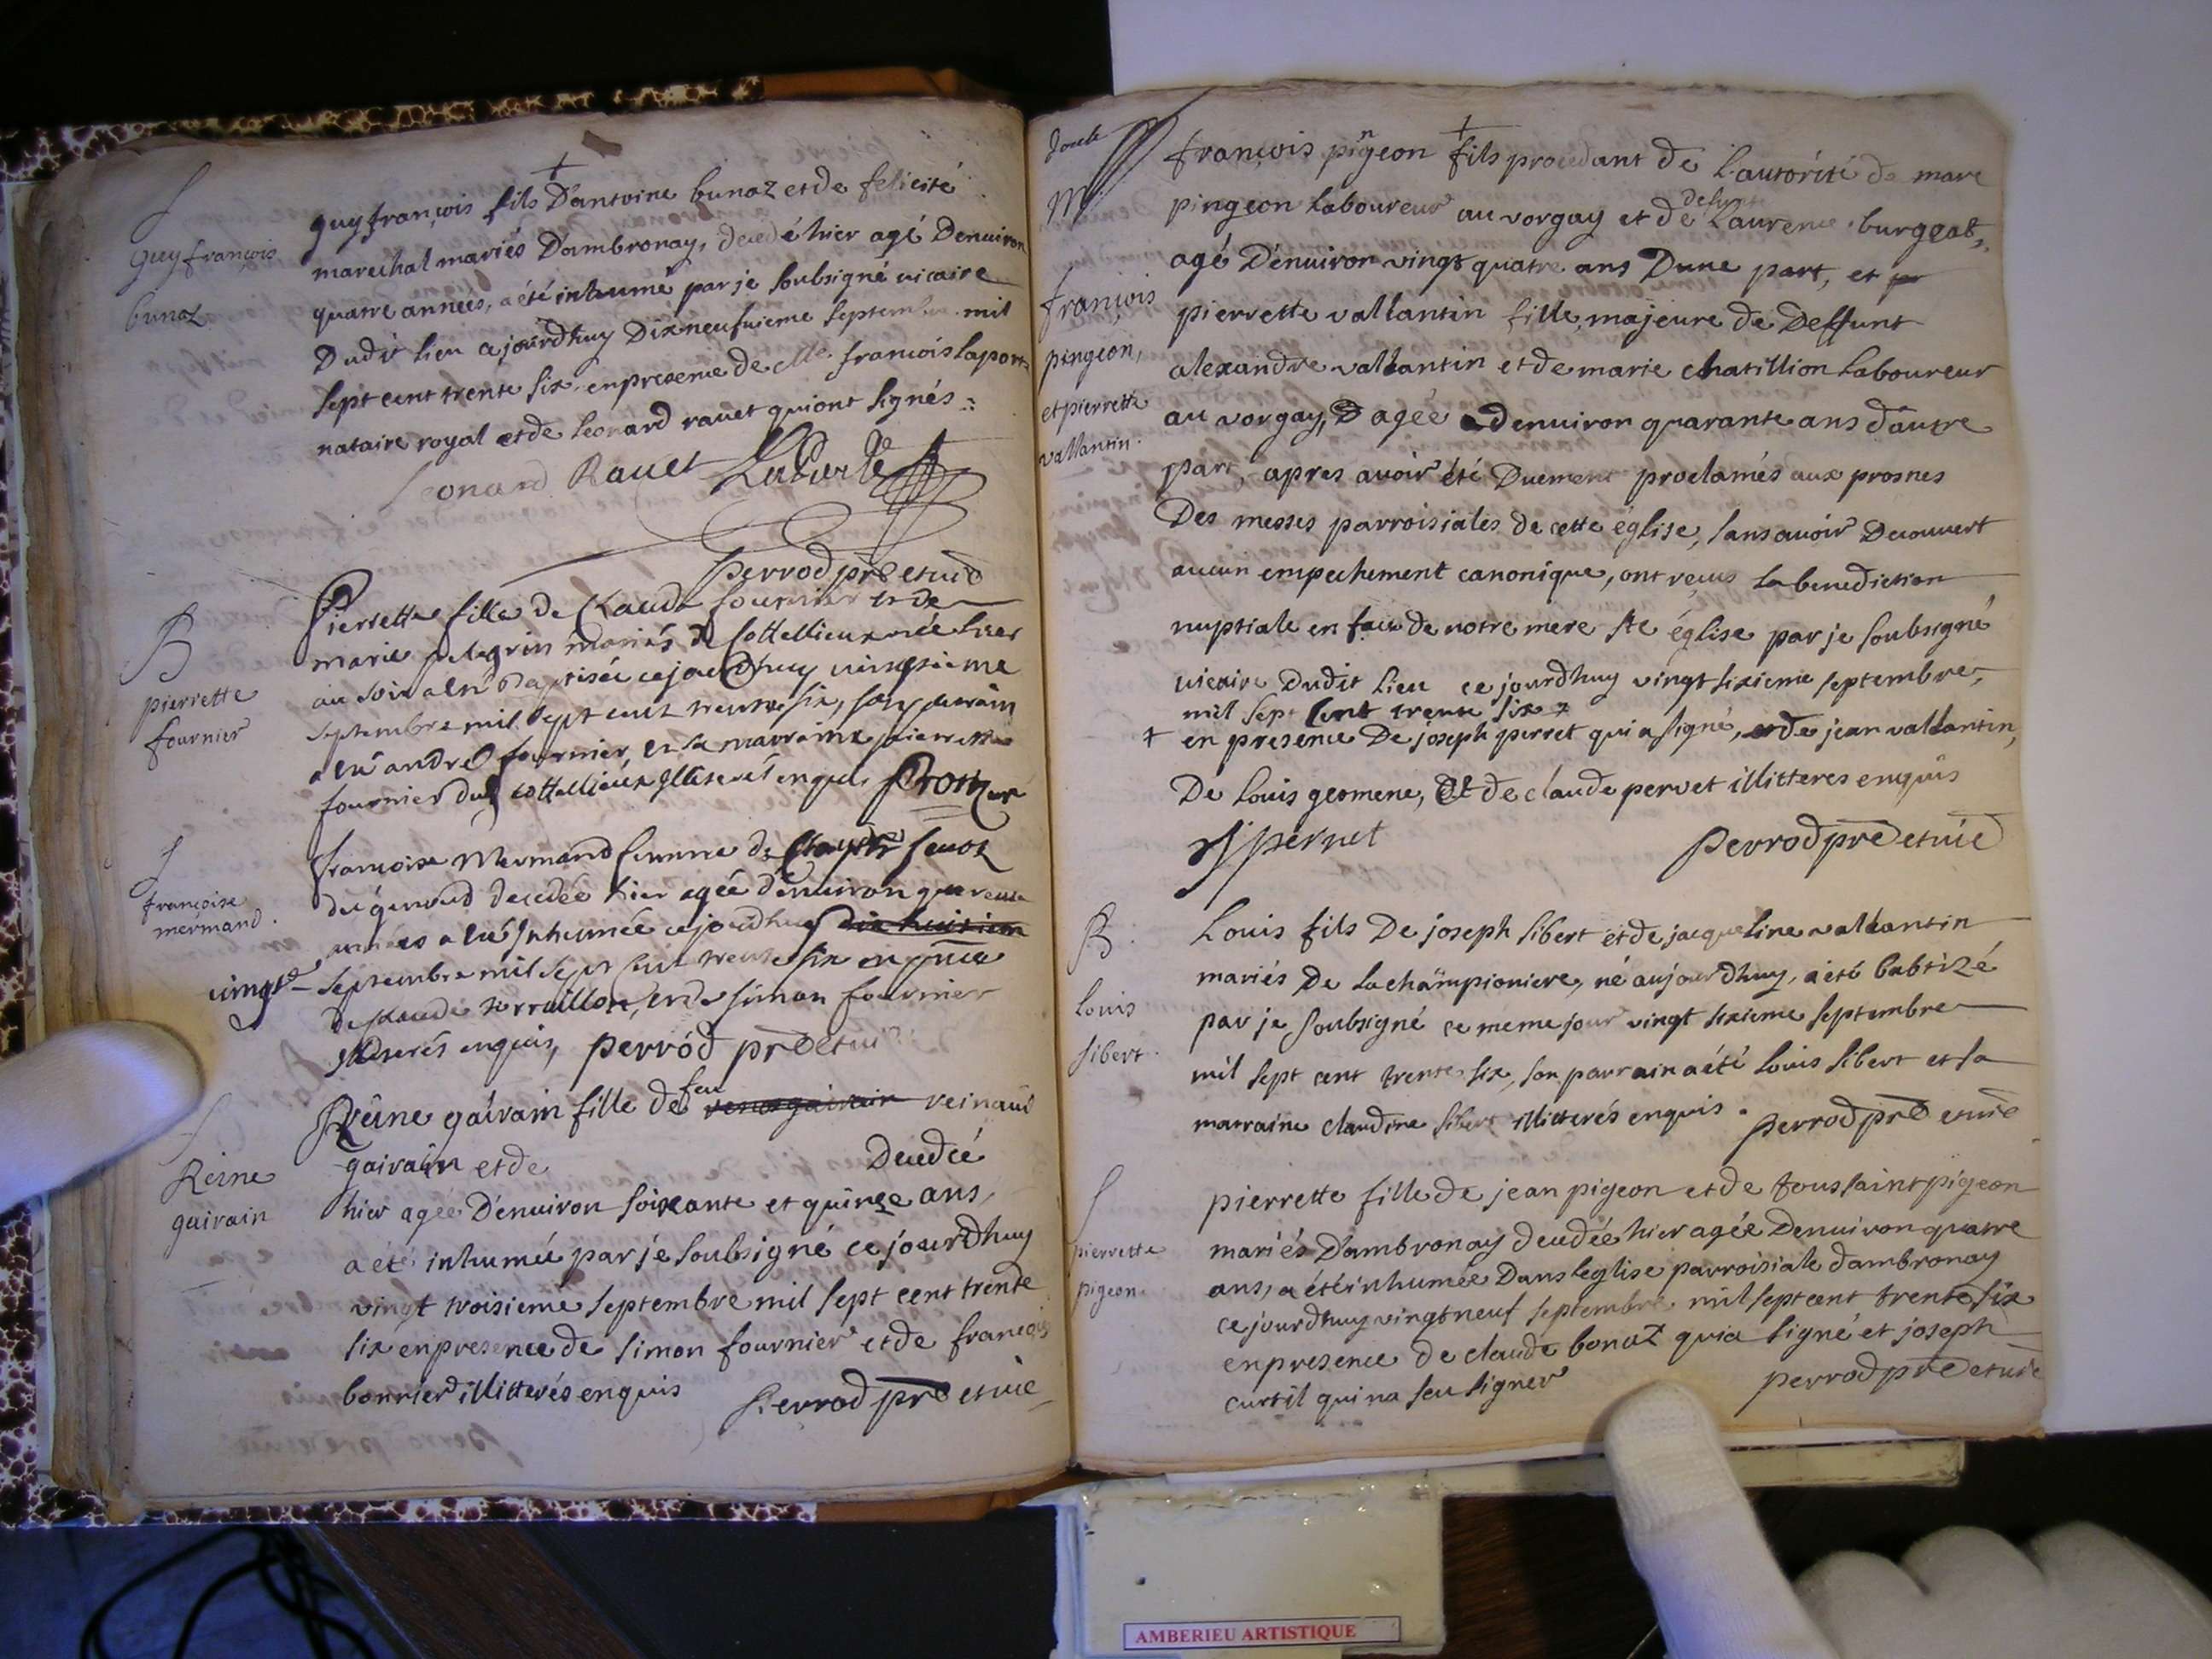 S
guy françois
bunaz
guy françois fils D'antoine bunaz et de felicité
marechal mariés D'ambronay, decedé hier agé Denuiron
quatre années, a été inhumé par je soubsigné vicaire
Dudit lieu cejourdhuy Dixneufuieme septembre mil
sept cent trente six, en presence de Me françois laporte
nataire royal et de leonard rauet qui ont signés
Leonard Rauet LaPorte
perrod pre et vic
B
pierrette
fournier
Pierrette fille de Claude fournier et de
marie pelegrin mariés de Cottellieux née hier
au soir a eté Baptisée cejourdhuy vingtieme
septembre mil sept cent trente six, son parrain
a eté andré fournier, et sa marraine pierrette
fournier dud cottellieux illiterés enquis
S
francoise
mermand
francoise Mermand femme de
decedée hier agée denuiron quarente
années a eté Inhumée cejourdhuy dix huitiem
vingt
septembre mil sept cent trente six en pnce
de Claude terraillon, et de simon fournier
illiterés enquis, perrod pre et vic
S
Reine
guirain
Reine gairain fille de feu reinaud
gairain et de Decedée
hier agée D'enuiron soixante et quinze ans,
a été inhumée par je soubsigné ce jourdhuy
vingt troisieme septembre mil sept cent trente
six en presence de simon fournier et de francois
bonnier illitterés enquis perrod pre et vic
M
françois
pingeon,
et pierrette
vallantin
françois pingeon fils procedant de L'autorité de marc
pingeon laboureur au vorgay et de defunte Laurence burgeat,
agé D'enuiron vingt quatre ans Dune part, et
pierrette vallantin fille majeure de Deffunt
alexandre vallantin et de marie chatillion laboureur
au vorgay, agée denuiron quarante ans d'autre
part, apres auoir été Duement proclamés aux prosnes
Des messes parroisiales de cette église, sans auoir Decouuert
aucun empechement canonique, ont reçus la benediction
nuptiale en face de notre mere ste église par je soubsigné
vicaire Dudit lieu ce jourdhuy vingt sixieme septembre
mil sept Cent trente six
+ en presence De joseph perret qui a signé, et de jean vallantin,
De louis geomene, et de claude peruet illitteres enquis
J pernet perrod pre et vic
B
louis
sibert
Louis fils De joseph sibert et de jacqueline vallantin
mariés De la championiere, né aujourdhuy, a été babtizé
par je soubsigné ce meme jour vingt sixieme septembre
mil sept cent trente six, son parrain a été louis sibert et sa
marraine claudine sibert illitterés enquis. perrod pre et vic
S
pierrette
pigeon
pierrette fille de jean pigeon et de toussaint pigeon
mariés D'ambronay decedée hier agée Denuiron quatre
ans, a été inhumée Dans l'eglise parroisiale d'ambronay
ce jourdhuy vingt neuf septembre mil sept cent trente six
en presence de claude bonaz qui a signé et joseph
curtil qui na sceu signer perrod pre et vic
AMBERIEU ARTISTIQUE